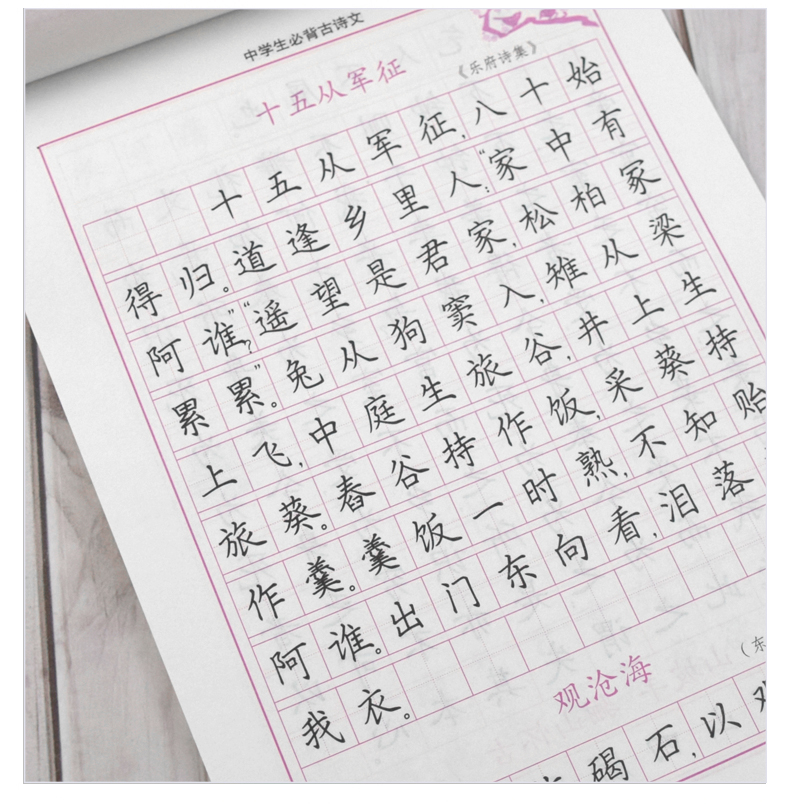 中学生必背古诗文
十五从军征
《乐府诗集》
十五从军征,八十始
得归。道逢乡里人:“家中有
阿谁?”“遥望是君家,松柏冢
累累。”兔从狗窦入,雉从梁
上飞,中庭生旅谷,井上生
旅葵。舂谷持作饭,采葵持
作羹。羹饭一时熟,不知贻
阿谁。出门东向看,泪落
我衣。
观沧海
(东
碣石,以